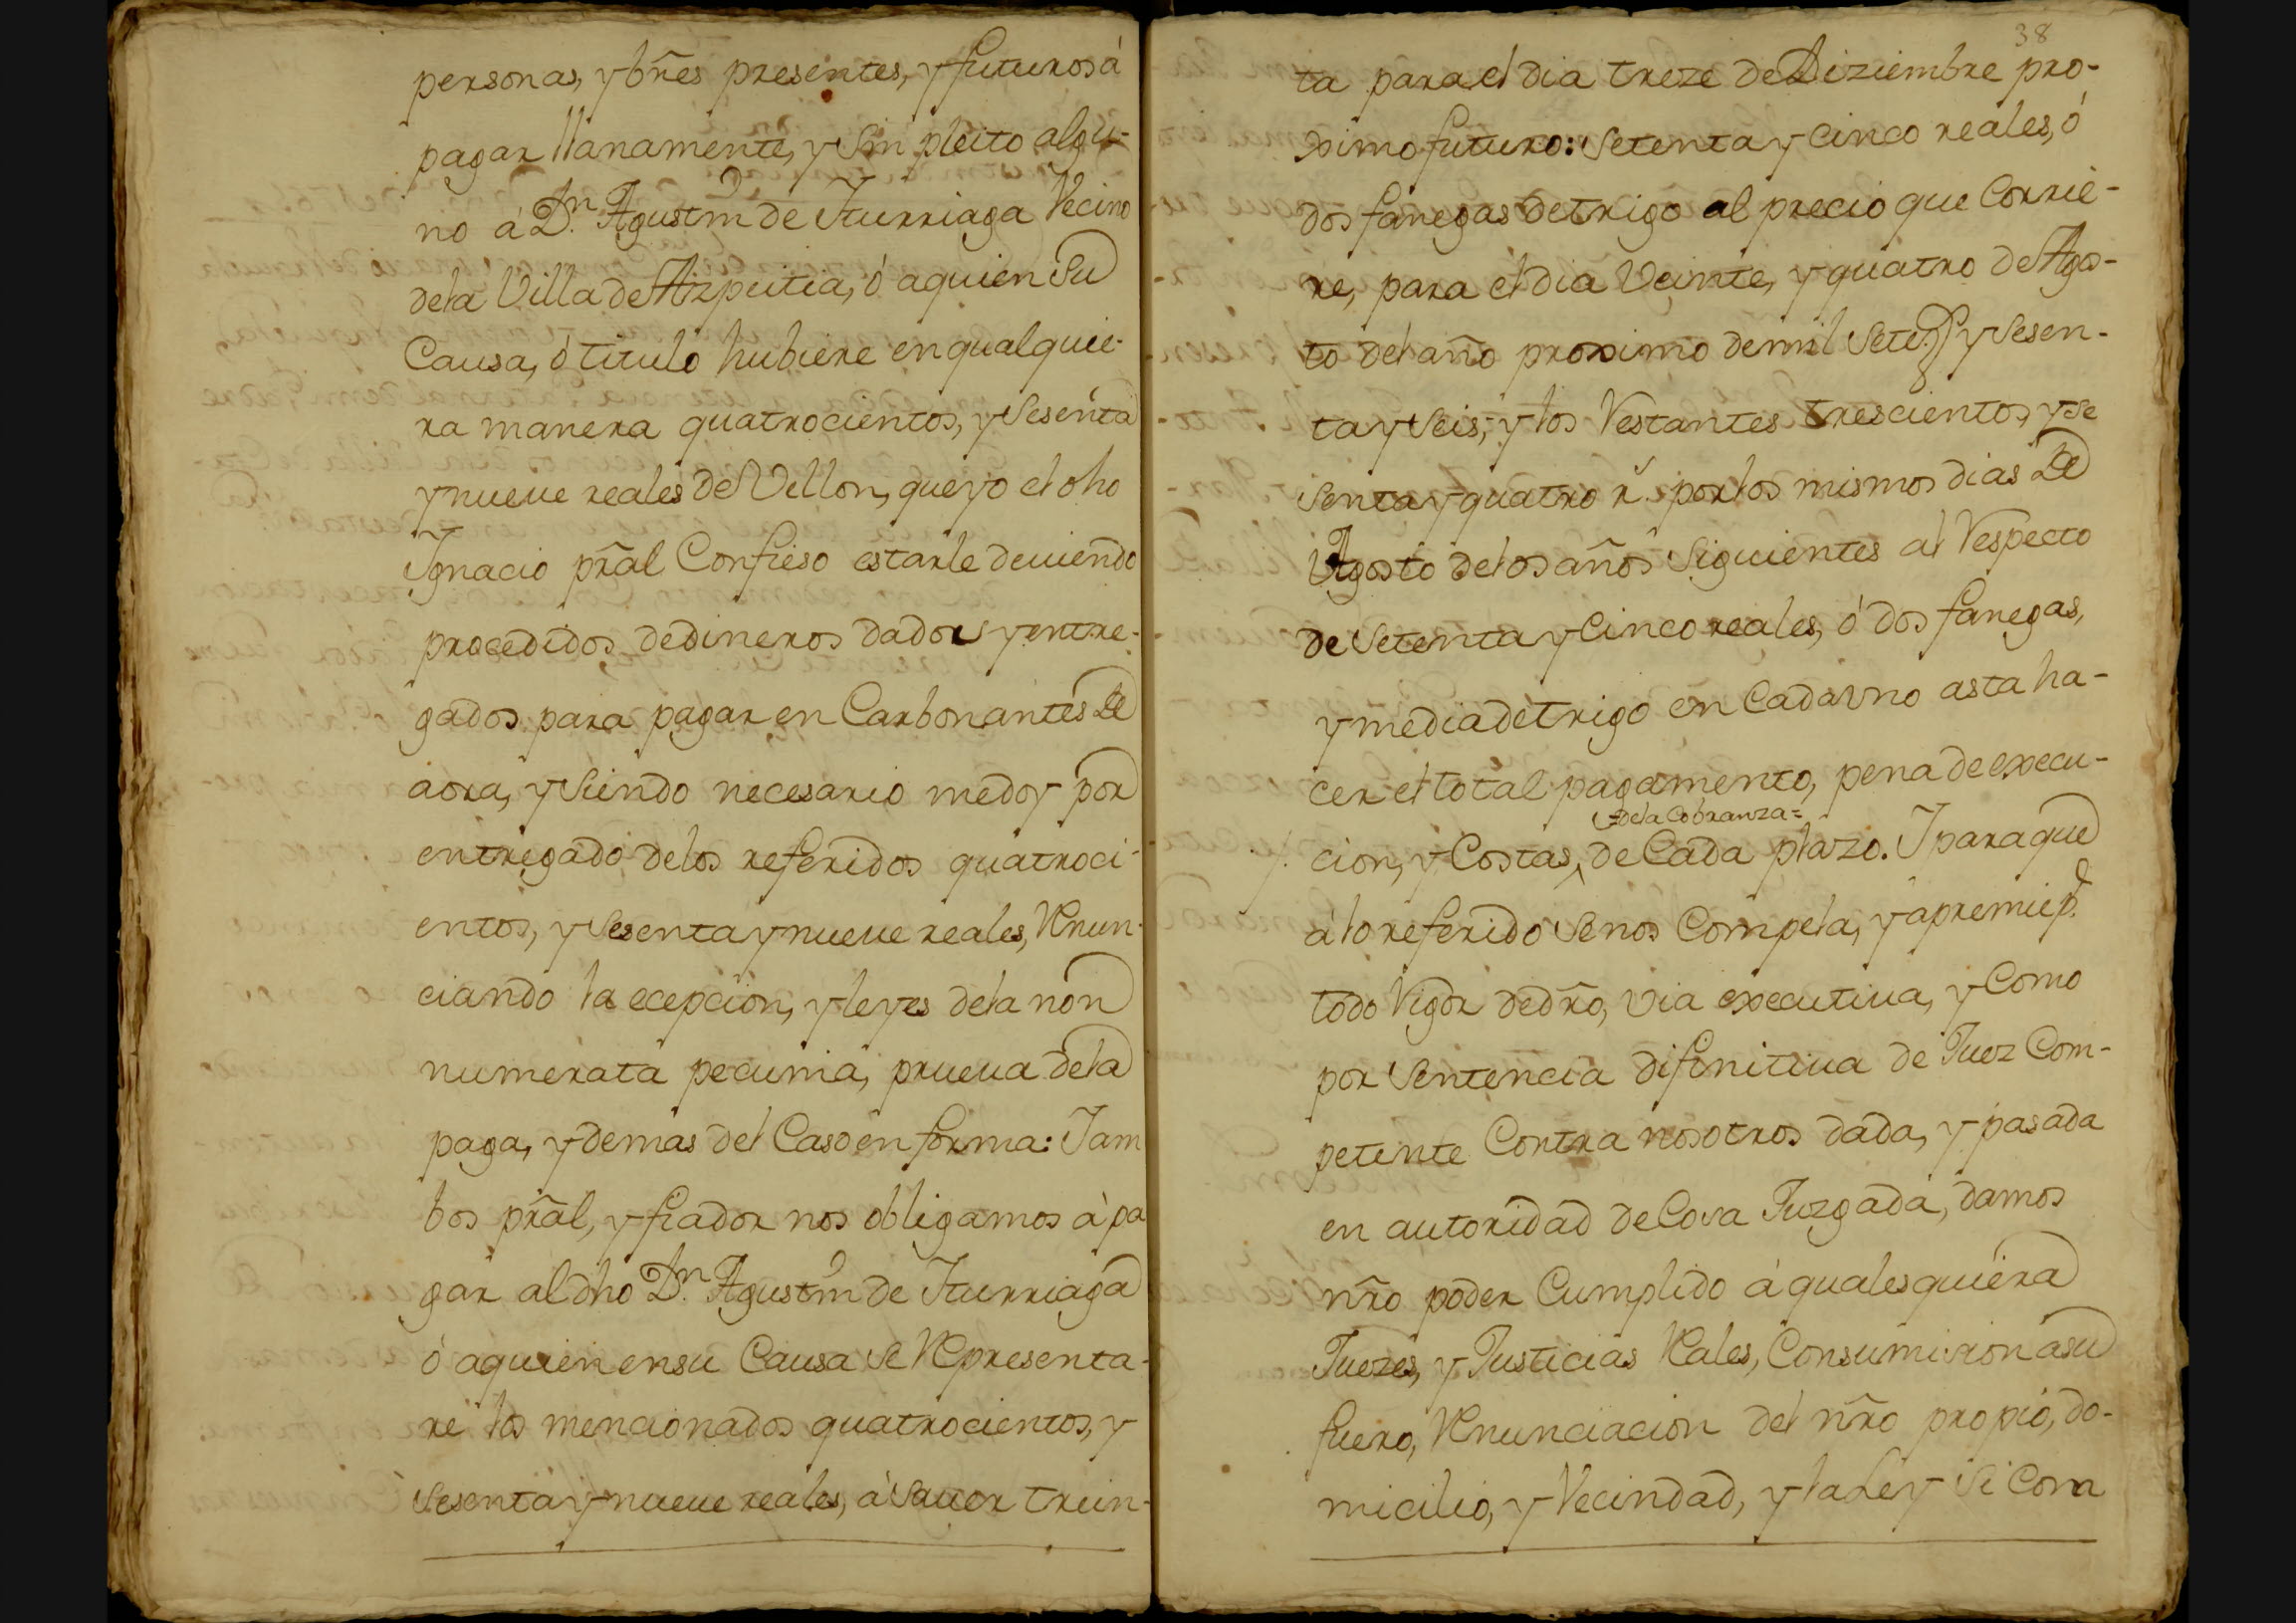 personas, y br̃es presentes, y futuros á
pagar llanamente, y Sin pleito algu-
no á Dn. Agustin de Iturriaga Vecino
dela Villa de Azpeitia, ó aquien Su
Causa, ó titulo hubiere en qualquie-
ra manera quatrocientos, y Sesenta
y nueue reales de Vellon, que yo el dho
Ignacio prãl Confieso estarle deuiendo
procedidos de dineros dados y entre-
gados para pagar en Carbonantes De
aora, y Siendo necesario me doy por
entregado delos referidos quatroci-
entos, y Sesenta y nueue reales, Renun-
ciando la ecepcion, y leyes dela non
numerata pecunia, prueua dela
paga, y demas del Caso en forma: I am
bos prãl, y fiador nos obligamos à pa
gar al dho Dn. Agustin de Iturriaga
ó aquien ensu Causa Se Representa-
re los mencionados quatrocientos, y
Sesenta y nueue reales, á Sauer trein-
38
ta para el dia treze de Diziembre pro-
ximo futuro: Setenta y Cinco reales, ó
dos fanegas de trigo al precio que Corrie-
re, para el dia Veinte, y quatro de Agos-
to del año proximo de mil Setezs. y Sesen-
ta y Seis, y los Restantes trescientos, y se
Senta y quatro rs. por los mismos dias De
Agosto delos años Siguientes al Respecto
de Setenta y Cinco reales, ó dos fanegas,
y media de trigo en Cada vno asta ha-
cer el total pagamento, pena de execu-
dela Cobranza=
cion, y Costas, de Cada plazo. I para que
à lo referido Se nos Compela, y apremie pr.
todo Rigor de dr̃o, via executiua, y Como
por Sentencia difinitiua de Juez Com-
petente Contra nosotros dada, y pasada
en autoridad de Cosa Juzgada, damos
nr̃o poder Cumplido á qualesquiera
Juezes, y Justicias Reales, Consumision asu
fuero, Renunciacion del nr̃o propio, do-
micilio, y Vecindad, y la Ley Si Com